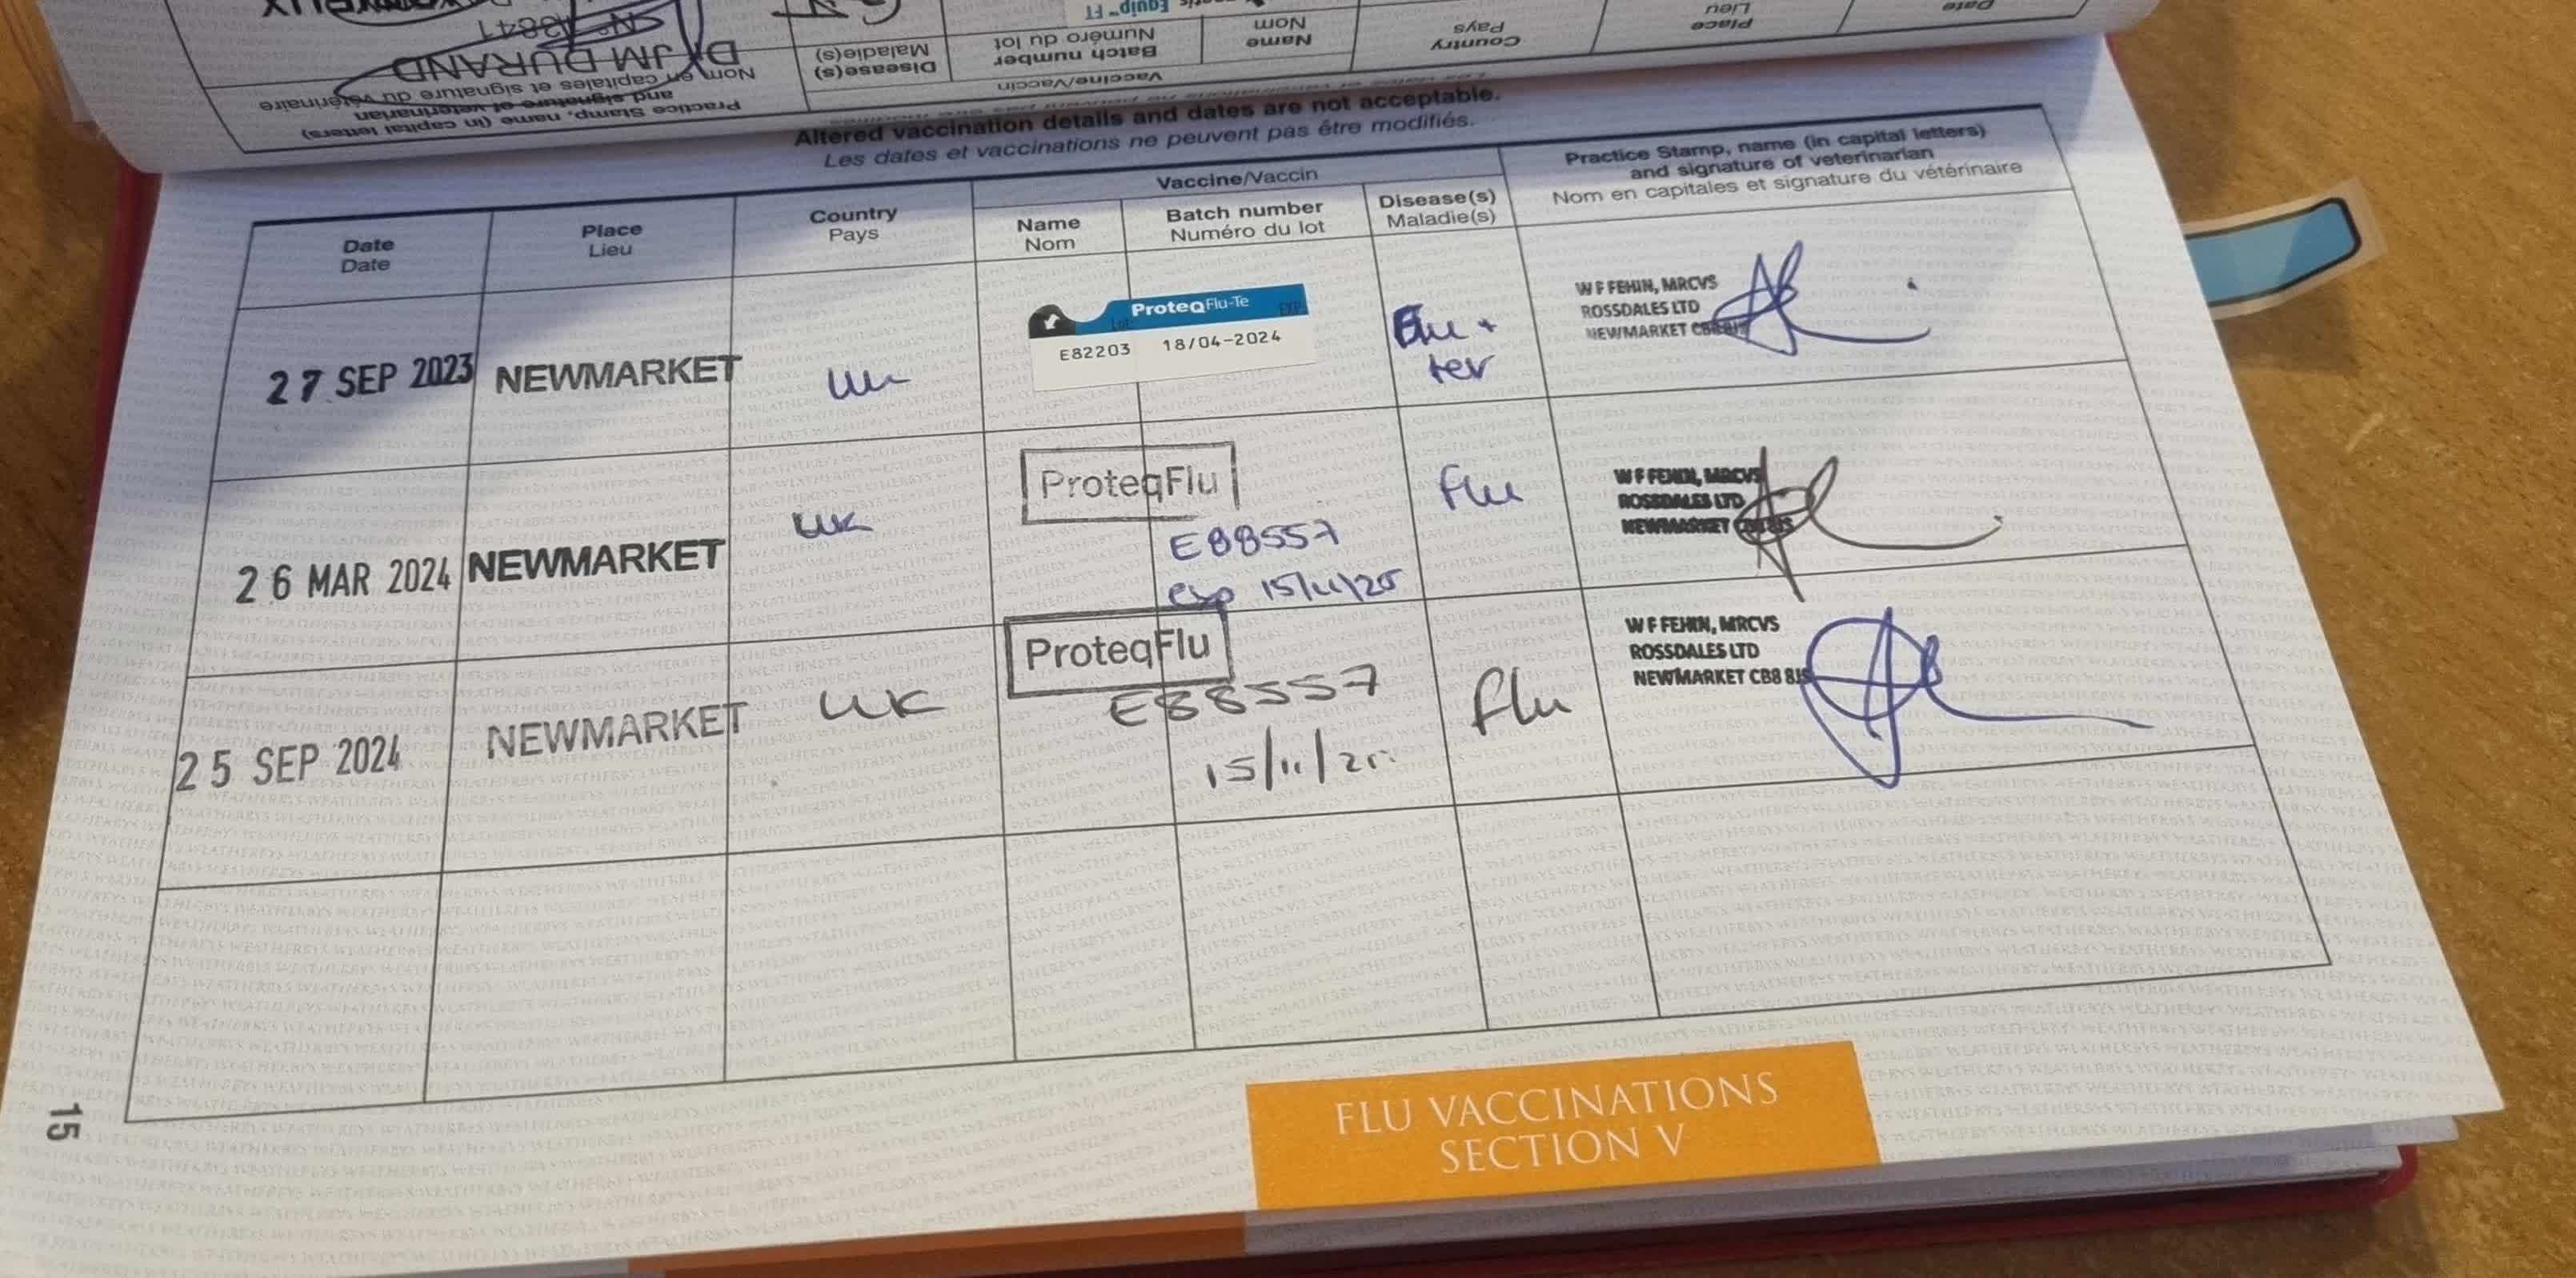 Altered vaccination details and dates are not acceptable.
Les dates et vaccinations ne peuvent pas être modifiés.
Date
Date
Place
Lieu
Country
Pays
Vaccine/Vaccin
Name
Nom
Batch number
Numéro du lot
Disease(s)
Maladie(s)
Practice Stamp, name (in capital letters)
and signature of veterinarian
Nom en capitales et signature du vétérinaire
27 SEP 2023
NEWMARKET
UK
ProteqFlu-Te
Lot
EXP
E82203 18/04-2024
Flu +
tet
W F FEHIN, MRCVS
ROSSDALES LTD
NEWMARKET CB8 8JS
26 MAR 2024
NEWMARKET
UK
ProteqFlu
E88557
exp 15/11/25
Flu
W F FEHIN, MRCVS
ROSSDALES LTD
NEWMARKET CB8 8JS
25 SEP 2024
NEWMARKET
UK
ProteqFlu
E88557
15/11/25
Flu
W F FEHIN, MRCVS
ROSSDALES LTD
NEWMARKET CB8 8JS
FLU VACCINATIONS
SECTION V
15
Practice Stamp, name (in capital letters)
and signature of veterinarian
Nom en capitales et signature du vétérinaire
Dr JM DURAND
Vaccine/Vaccin
Disease(s)
Maladie(s)
Batch number
Numéro du lot
Name
Nom
Country
Pays
Place
Lieu
Date
Equip™ FT